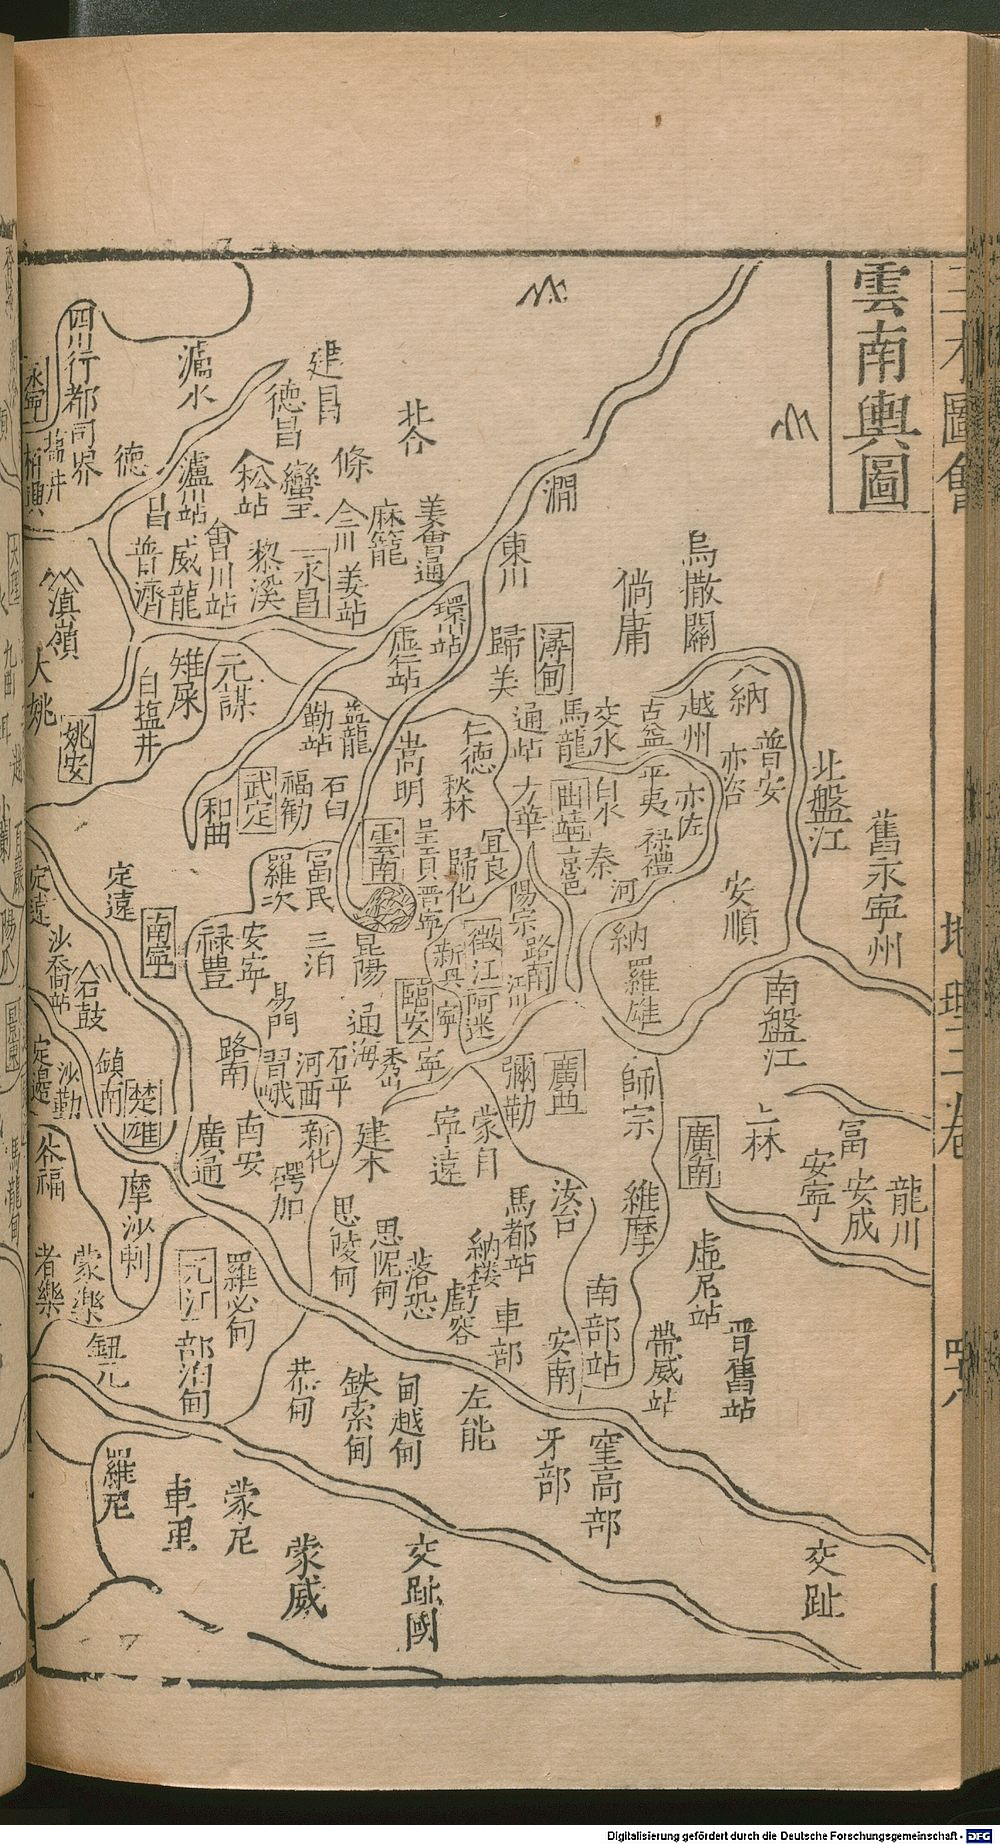 雲南輿圖
地理三卷
舊永寧州
龍川
安成
富
安寧
北盤江
南盤江
上林
交趾
普安
安順
八納
亦佐
越州
烏撒關
倘庸
古益
平夷
交水
白水
馬龍
曲靖
秦
河
納
羅雄
師宗
維摩
廣南
虛尼站
晋舊站
帶威站
南部站
窐高部
牙部
安南
廣西
彌勒
馬都站
車部
納楼
左能
蒙自
寧遠
東川
澗
歸美
潯甸
通站
陽宗
路南
徵江
阿迷
新興
寧
臨安
宜良
歸化
呈貢
晋寧
仁德
嵩明
雲南
昆陽
通海
秀山
寧
北
姜站
麻籠
環州站
虛仁站
建昌
德昌
永昌
黎溪
松站
會川站
瀘水
瀘川站
威龍
普濟
德
昌
四川行都司界
滇嶺
大姚
姚安
白塩井
元謀
勤站
武定
福勸
石臼
和曲
羅次
富民
三泊
安寧
祿豊
易門
南寧
定遠
定遠
沙喬站
石鼓
沙勤
定邊
鎮南
楚雄
廣通
南安
路南
習峨
河西
石平
新化
碍加
建木
思陵甸
思呢甸
落恐
摩沙剌
蒙樂
者樂
鈕元
元江
羅必甸
部泊甸
恭甸
鉄索甸
甸越甸
羅尼
車里
蒙尼
蒙威
交趾國
Digitalisierung gefördert durch die Deutsche Forschungsgemeinschaft - DFG